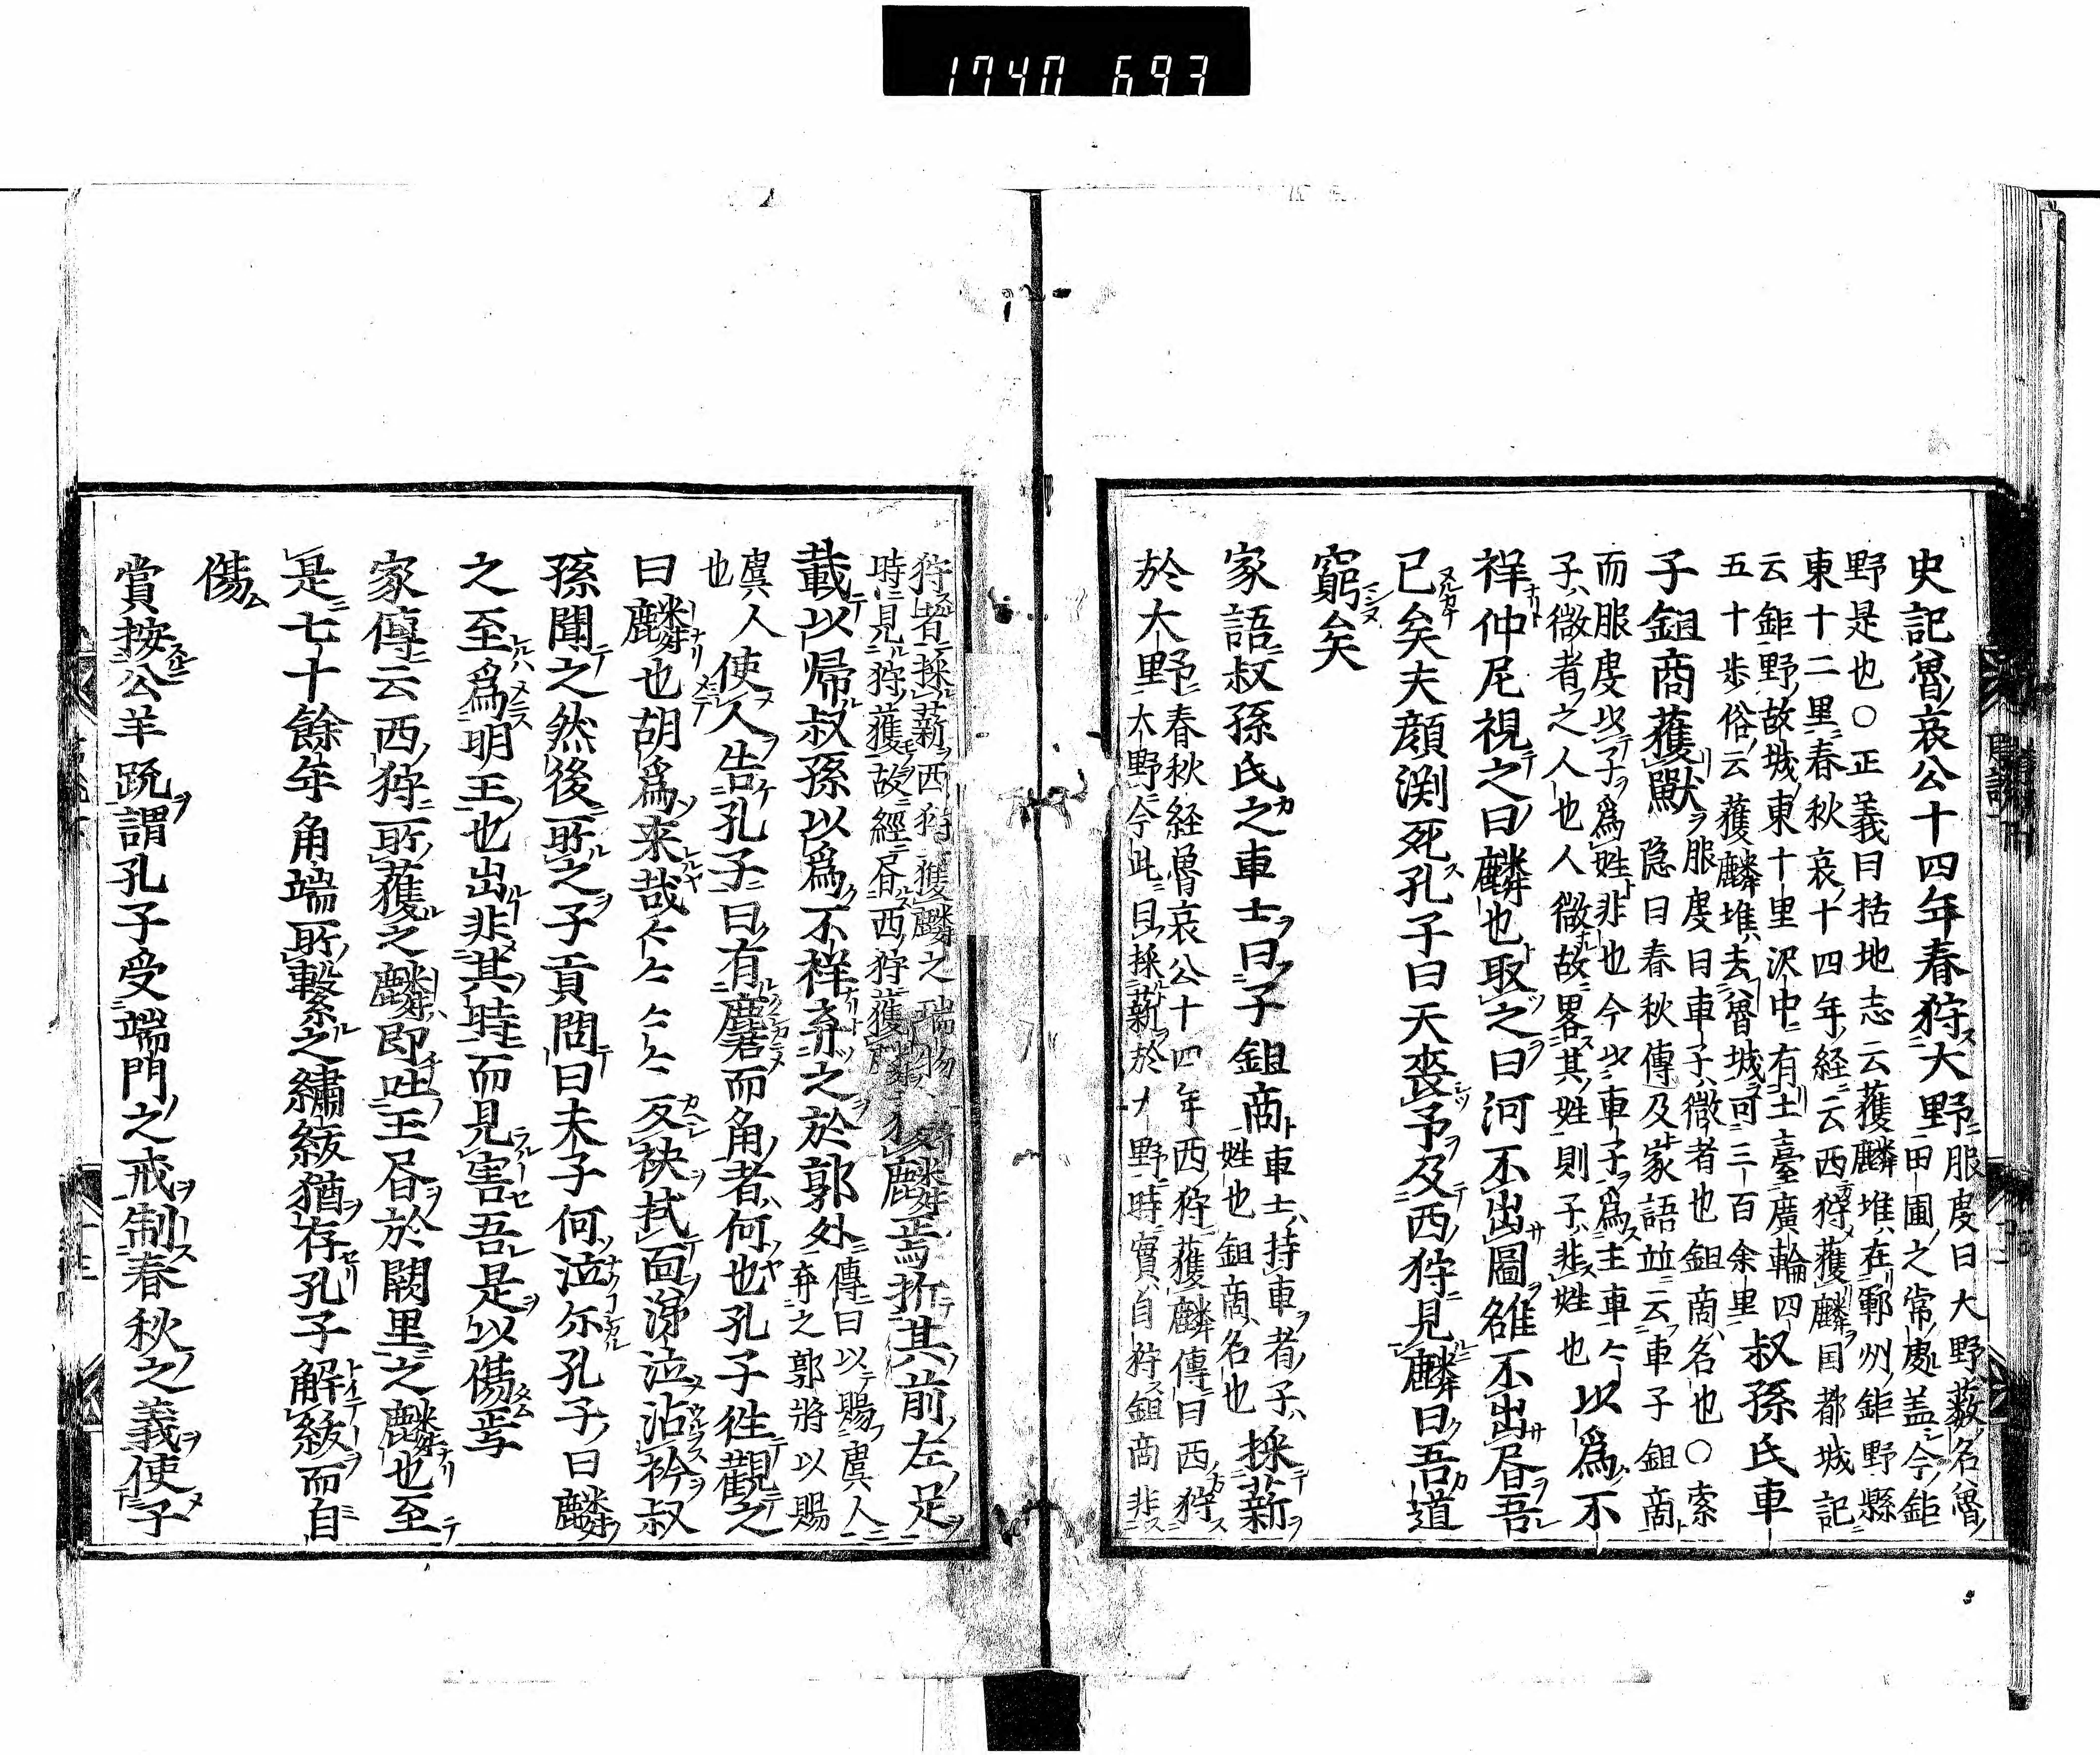 1740 693
史記魯哀公十四年春狩大野服虔曰大野藪名魯
田圃之常處盖今鉅
野是也○正義曰括地志云獲麟堆在鄆州鉅野縣
東十二里春秋哀十四年経云西狩獲麟国都城記
云鉅野故城東十里沢中有土臺廣輪四
五十歩俗云獲麟堆去魯城可三百余里叔孫氏車
子鉏商獲獸服虔曰車子微者也鉏商名也○索
隠曰春秋傳及家語並云車子鉏商
而服虔以子為姓非也今以車子為主車々
子微者之人也人微故畧其姓則子非姓也以為不
祥仲尼視之曰麟也取之曰河不出圖雒不出書吾
已矣夫顔渕死孔子曰天喪予及西狩見麟曰吾道
窮矣
家語叔孫氏之車士曰子鉏商車士持車者子
姓也鉏商名也採薪
於大野春秋経魯哀公十四年西狩獲麟傳曰西狩
大野今此曰採薪於大野時實自狩鉏商非
狩者採薪西狩獲麟之瑞物
時見狩獲故經書西狩獲麟焉折其前左足
載以帰叔孫以為不祥弃之於郭外傳曰以賜虞人
弃之郭将以賜
虞人
也使人告孔子曰有麏而角者何也孔子往觀之
曰麟也胡為来哉々々々々反袂拭面涕泣沾衿叔
孫聞之然後取之子貢問曰夫子何泣尓孔子曰麟
之至為明王也出非其時而見害吾是以傷焉
家傳云西狩所獲之麟即吐玉書於闕里之麟也至
是七十餘年角端所繫之繡紱猶存孔子解紱而自
傷
賞按公羊䟽謂孔子受端門之戒制春秋之義使子